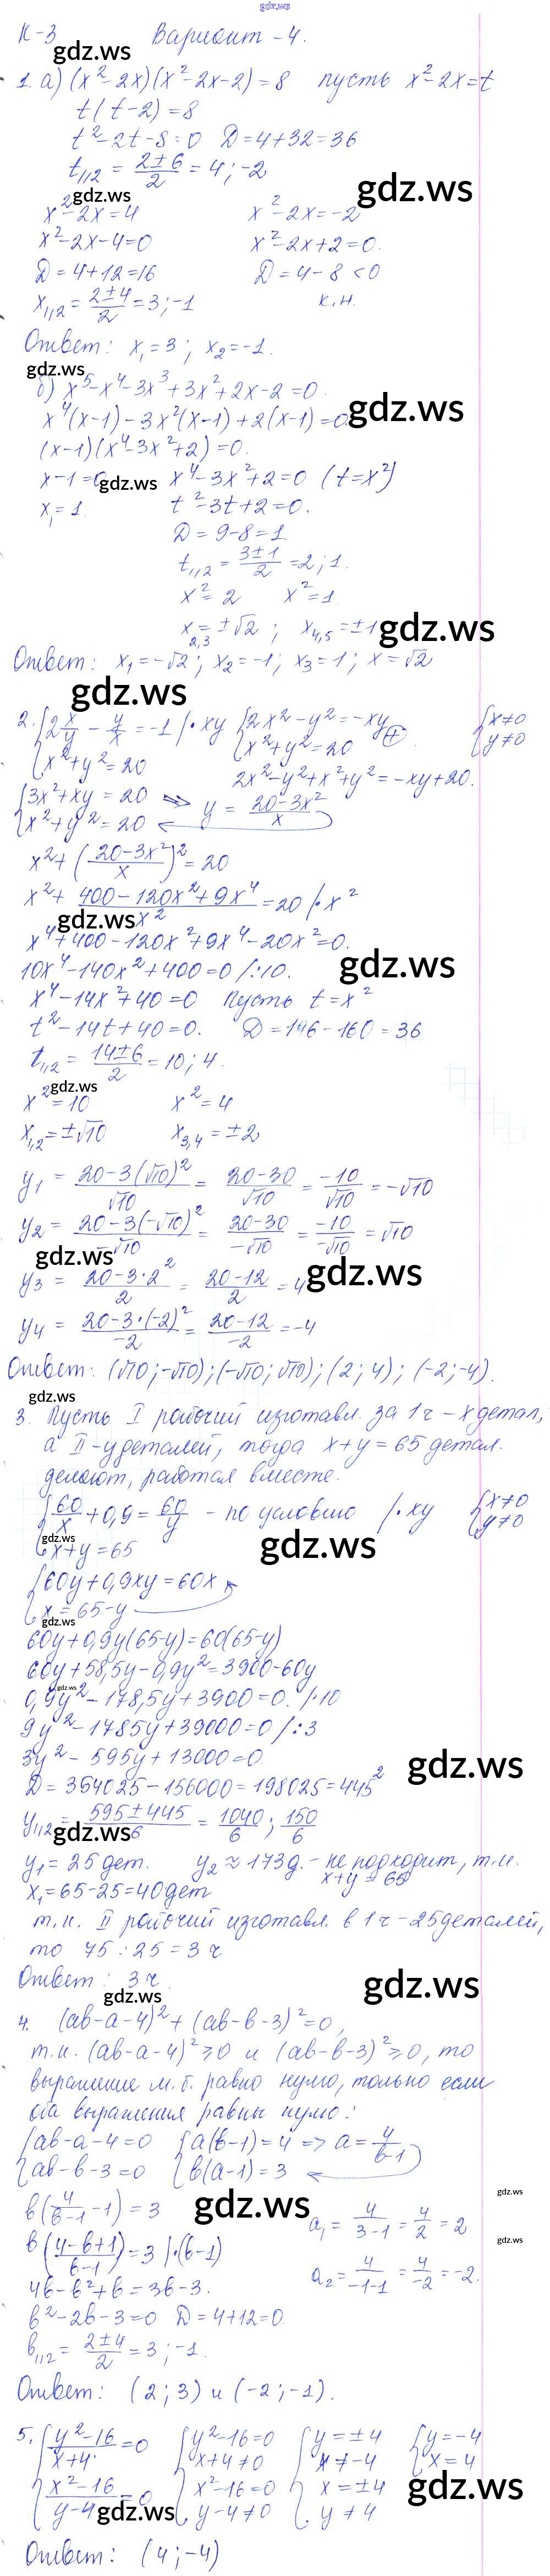 gdz.ws
К-3 Вариант-4.
gdz.ws
1. а) (x²-2x)(x²-2x-2)=8 пусть x²-2x=t
t(t-2)=8
t²-2t-8=0 Д=4+32=36
t₁,₂ = (2±6)/2 = 4; -2
gdz.ws
gdz.ws
x²-2x=4 x²-2x=-2
x²-2x-4=0 x²-2x+2=0.
Д=4+12=16 Д=4-8<0
x₁,₂ = (2±4)/2 = 3; -1 к.н.
Ответ: x₁=3; x₂=-1.
gdz.ws
б) x⁵-x⁴-3x³+3x²+2x-2=0.
x⁴(x-1)-3x²(x-1)+2(x-1)=0.
gdz.ws
(x-1)(x⁴-3x²+2)=0.
x-1=0 x⁴-3x²+2=0 (t=x²)
gdz.ws
x₁=1. t²-3t+2=0.
Д=9-8=1.
t₁,₂ = (3±1)/2 = 2; 1.
x²=2 x²=1.
x₂,₃=±√2; x₄,₅=±1
gdz.ws
Ответ: x₁=-√2; x₂=-1; x₃=1; x=√2
gdz.ws
2. {2x/y - y/x = -1 |·xy {2x²-y²=-xy {x≠0
{x²+y²=20 {x²+y²=20 (+) {y≠0
2x²-y²+x²+y²=-xy+20.
{3x²+xy=20 => y = (20-3x²)/x
{x²+y²=20
x²+((20-3x²)/x)²=20
x²+ (400-120x²+9x⁴)/x² =20 |·x²
gdz.ws
x⁴+400-120x²+9x⁴-20x²=0.
gdz.ws
10x⁴-140x²+400=0 |:10.
x⁴-14x²+40=0 Пусть t=x²
t²-14t+40=0. Д=196-160=36
t₁,₂ = (14±6)/2 = 10; 4.
gdz.ws
x²=10 x²=4
x₁,₂=±√10 x₃,₄=±2
y₁ = (20-3(√10)²)/√10 = (20-30)/√10 = -10/√10 = -√10
y₂ = (20-3(-√10)²)/-√10 = (20-30)/-√10 = -10/-√10 = √10
gdz.ws
gdz.ws
y₃ = (20-3·2²)/2 = (20-12)/2 = 4
y₄ = (20-3·(-2)²)/-2 = (20-12)/-2 = -4
Ответ: (√10; -√10); (-√10; √10); (2; 4); (-2; -4).
gdz.ws
3. Пусть I рабочий изготавл. за 1ч - x детал,
а II-y деталей, тогда x+y=65 детал.
делают, работая вместе.
{60/x + 0,9 = 60/y - по условию |·xy {x≠0
{x+y=65 {y≠0
gdz.ws
gdz.ws
{60y+0,9xy=60x
{x=65-y
gdz.ws
60y+0,9y(65-y)=60(65-y)
60y+58,5y-0,9y²=3900-60y
gdz.ws
0,9y²-178,5y+3900=0. |·10
9y²-1785y+39000=0 |:3
3y²-595y+13000=0
gdz.ws
Д=354025-156000=198025=445²
y₁,₂ = (595±445)/6 = 1040/6; 150/6
gdz.ws
y₁=25 дет. y₂≈173 д. - не подходит, т.к.
x₁=65-25=40 дет x+y=65
т.к. II рабочий изготавл. в 1ч-25 деталей,
то 75:25=3 ч
Ответ: 3ч.
gdz.ws
gdz.ws
4. (ab-a-4)²+(ab-b-3)²=0,
т.к. (ab-a-4)²≥0 и (ab-b-3)²≥0, то
выражение м.б. равно нулю, только если
оба выражения равны нулю:
{ab-a-4=0 {a(b-1)=4 => a=4/(b-1)
{ab-b-3=0 {b(a-1)=3
gdz.ws
b(4/(b-1) -1)=3
gdz.ws
a₁ = 4/(3-1) = 4/2 = 2
b((4-b+1)/(b-1))=3 |·(b-1)
gdz.ws
a₂ = 4/(-1-1) = 4/-2 = -2.
4b-b²+b=3b-3.
b²-2b-3=0 Д=4+12=0.
b₁,₂ = (2±4)/2 = 3; -1.
Ответ: (2; 3) и (-2; -1).
5. {(y²-16)/(x+4)=0 {y²-16=0 {y=±4 {y=-4
{x+4≠0 {x≠-4 {x=4
{(x²-16)/(y-4)=0 {x²-16=0 {x=±4
{y-4≠0 {y≠4
gdz.ws
gdz.ws
Ответ: (4; -4)